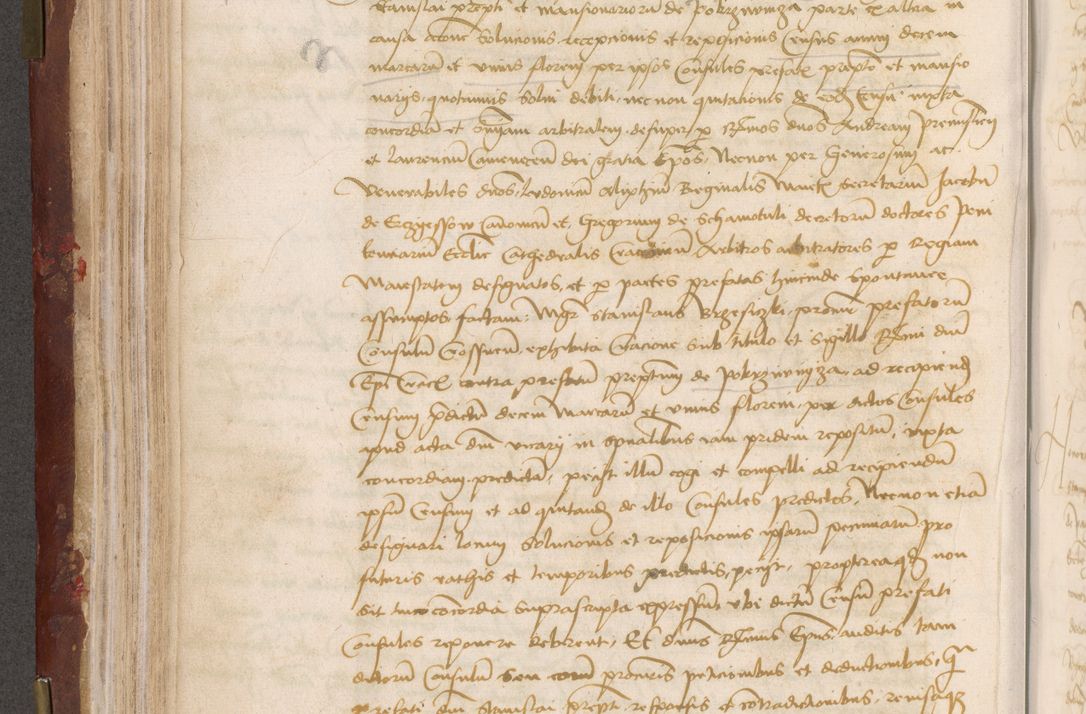 Stanislai prepti et mansionariorum de Pobrzowicza parte ex altera in
causa acione solucionis recepcionis et reposicionis census annui decem
marcarum et unius floreni per ipsos Consules prefatis prepto et mansio
narijs quotannis solui debiti nec non quitacionis de eodem censu iuxta
concordiam et arbitralem desuper per Rmos dnos Andream Premislien
et Laurencium Camenecen dei gratia Epos, Necnon per Generosum ac
Venerabiles dnos Lodovicum Reginalis Maiestatis Secretarium Jacobum
de Canonicum et Gregorium de Schamotuli decretorum doctores peni
tenciarium Ecclie Cathedralis Arbitros arbitratores per Regiam
Maiestatem designatos, et per partes prefatas hincinde sponthanee
assumptos factam, Mgr Stanislaus Brzeszky, procur prefatorum
Consulum exhibita Citacione sub titulo et sigillo Rmi dni
Epi Crac contra prefatum preptum de ad recipiend
Censum predictum decem Marcarum et unius floreni per dictos Consules
apud acta dni vicarij in spualibus iam pridem repositum, iuxta
concordiam predictam, petijt illum cogi et compelli ad recipiendum
ipsum Censum et ad quitand de illo Consules predictos, Necnon etiam
designari locum Solucionis et reposicionis ipsarum pecuniarum pro
futuris rathis et temporibus predictis, petijt, proptereaque non
sit in concordia suprascripta expressum ubi dictum Censum prefati
Consules reponere deberent, Et dnus Rmus Epus auditis tam
dictorum Consulum procuris peticionibus et deductionibus, quam
prefati dni Stanislai prepti responsis et contradictionibus, revisisque